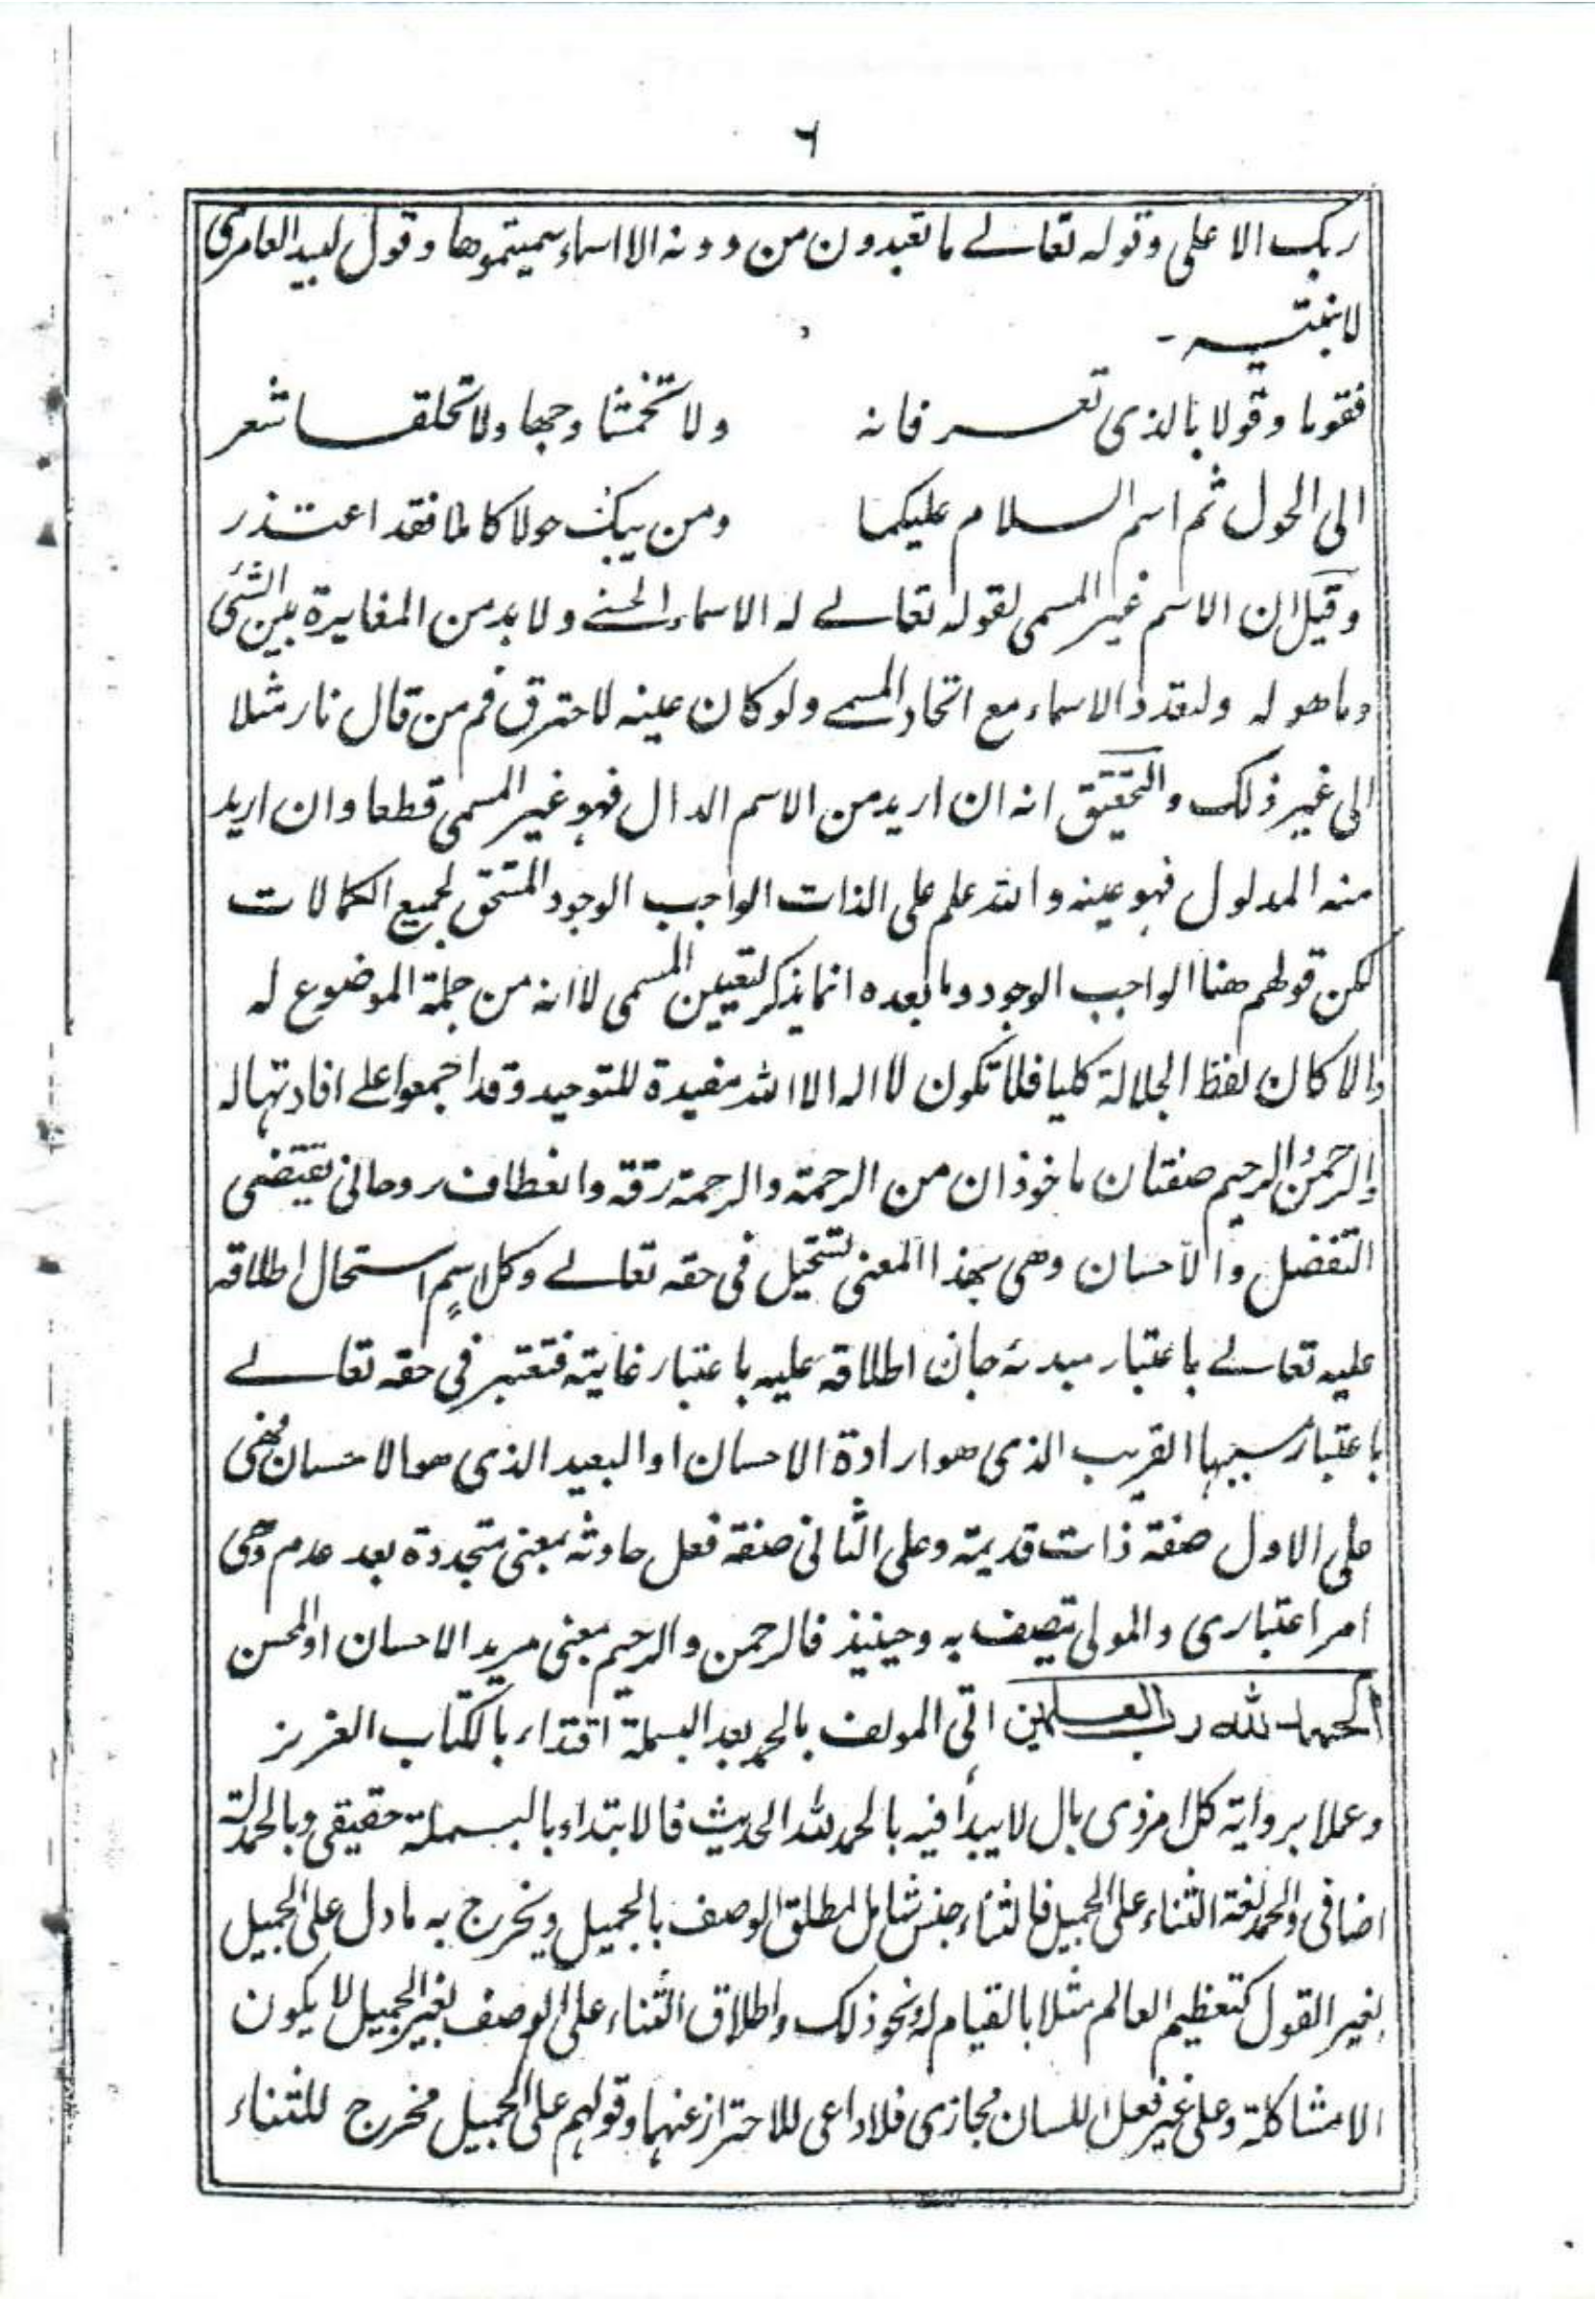 ٦
ربك الاعلى وقوله تعالے ما تعبدون من دونه الا اسماء سميتموها وقول لبيد العامري
لابنتيه -
فقوما وقولا بالذي تعرفانه ولا تخمشا وجها ولا تحلقا شعر
الى الحول ثم اسم السلام عليكما ومن يبك حولا كاملا فقد اعتذر
وقيل ان الاسم غير المسمى لقوله تعالے له الاسماء الحسنے ولا بد من المغايرة بين الشئ
وما هو له ولتعدد الاسماء مع اتحاد المسمے ولو كان عينه لاحترق فم من قال نار مثلا
الى غير ذلك والتحقيق انه ان اريد من الاسم الدال فهو غير المسمى قطعا وان اريد
منه المدلول فهو عينه والله علم على الذات الواجب الوجود المستحق لجميع الكمالات
لكن قولهم هنا الواجب الوجود وما بعده انما يذكر لتعيين المسمى لا انه من جملة الموضوع له
والا كان لفظ الجلالة كليا فلا تكون لا اله الا الله مفيدة للتوحيد وقد اجمعوا علے افادتها له
والرحمن الرحيم صفتان ماخوذان من الرحمة والرحمة رقة وانعطاف روحاني يقتضى
التفضل والاحسان وهي بهذا المعنى تستحيل في حقه تعالے وكل اسم استحال اطلاقه
عليه تعالے باعتبار مبدئه جاز اطلاقه عليه باعتبار غايته فتعتبر في حقه تعالے
باعتبار سببها القريب الذي هو ارادة الاحسان او البعيد الذي هو الاحسان فهي
على الاول صفة ذات قديمة وعلى الثاني صفة فعل حادثه بمعنى متجددة بعد عدم وهى
امر اعتباري والمولى يتصف به وحينئذ فالرحمن والرحيم بمعنى مريد الاحسان او المحسن
الحمد لله رب العلمين اتى المولف بالحمد بعد البسملة اقتداء بالكتاب العزيز
وعملا برواية كل امر ذي بال لا يبدأ فيه بالحمد لله الحديث فالابتداء بالبسملة حقيقى وبالحمدلة
اضافى والحمد لغة الثناء على الجميل فالثناء جنس شامل لمطلق الوصف بالجميل ويخرج به ما دل على الجميل
بغير القول كتعظيم العالم مثلا بالقيام له ونحو ذلك واطلاق الثناء على الوصف بغير الجميل لا يكون
الا مشاكلة وعلى غير فعل اللسان مجازى فلا داعى للاحتراز عنهما وقولهم على الجميل مخرج للثناء